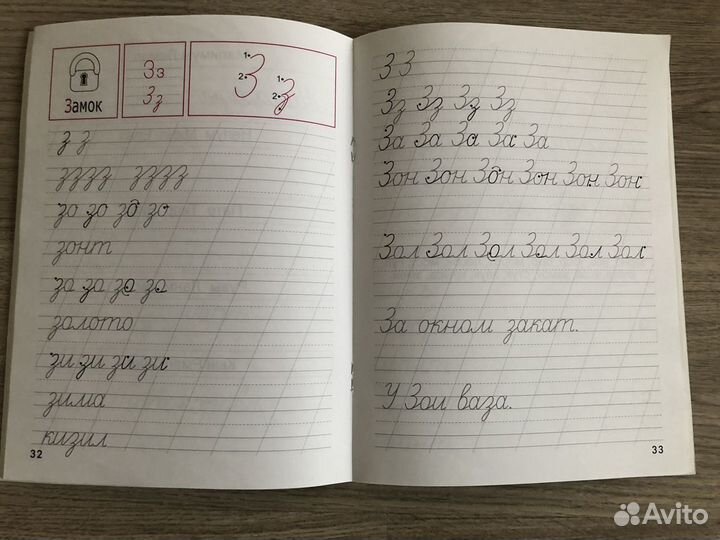 Замок
Зз
Зз
1• З
2•
1• з
2•
з з
зззз зззз
зо зо зо зо
зонт
за за за за
золото
зи зи зи зи
зима
кизил
32
З З
Зз Зз Зз Зз
За За За За За
Зон Зон Зон Зон Зон Зон
Зол Зол Зол Зол Зол Зол
За окном закат.
У Зои ваза.
33
Avito